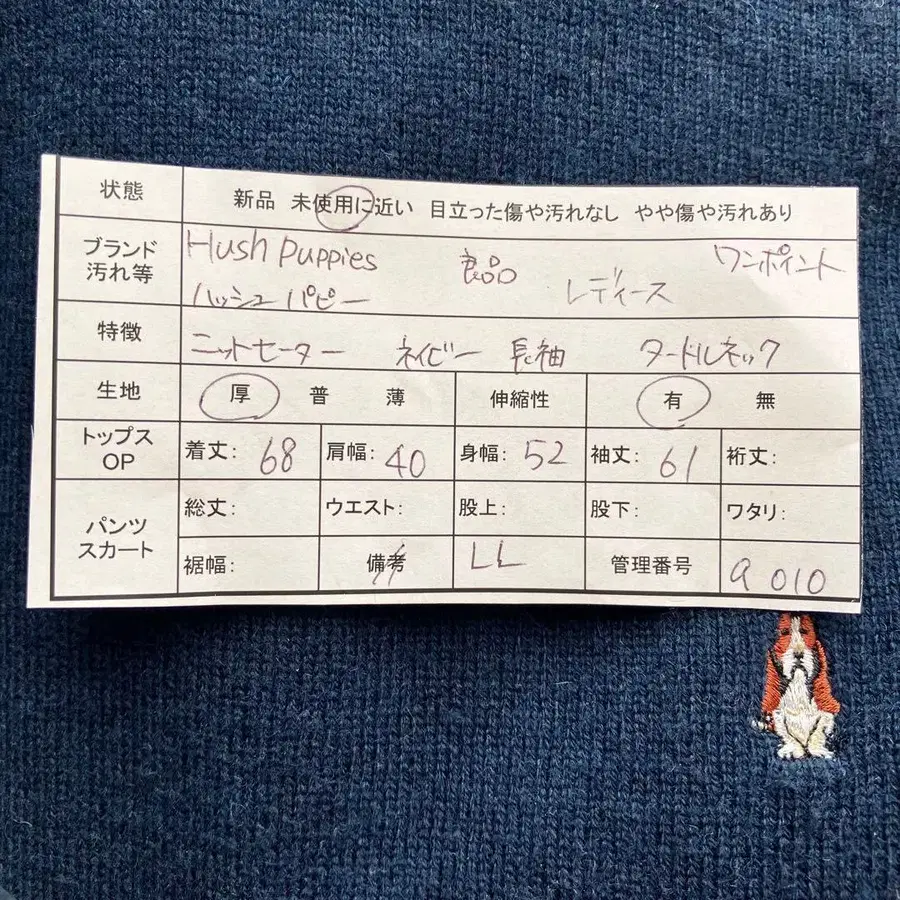 状態 新品 未使用に近い 目立った傷や汚れなし やや傷や汚れあり
ブランド 汚れ等 Hush Puppies 良品 ワンポイント
ハッシュパピー レディース
特徴 ニットセーター ネイビー 長袖 タートルネック
生地 厚 普 薄 伸縮性 有 無
トップス OP 着丈: 68 肩幅: 40 身幅: 52 袖丈: 61 裄丈:
パンツ スカート 総丈: ウエスト: 股上: 股下: ワタリ:
裾幅: 備考 LL 管理番号 a 010